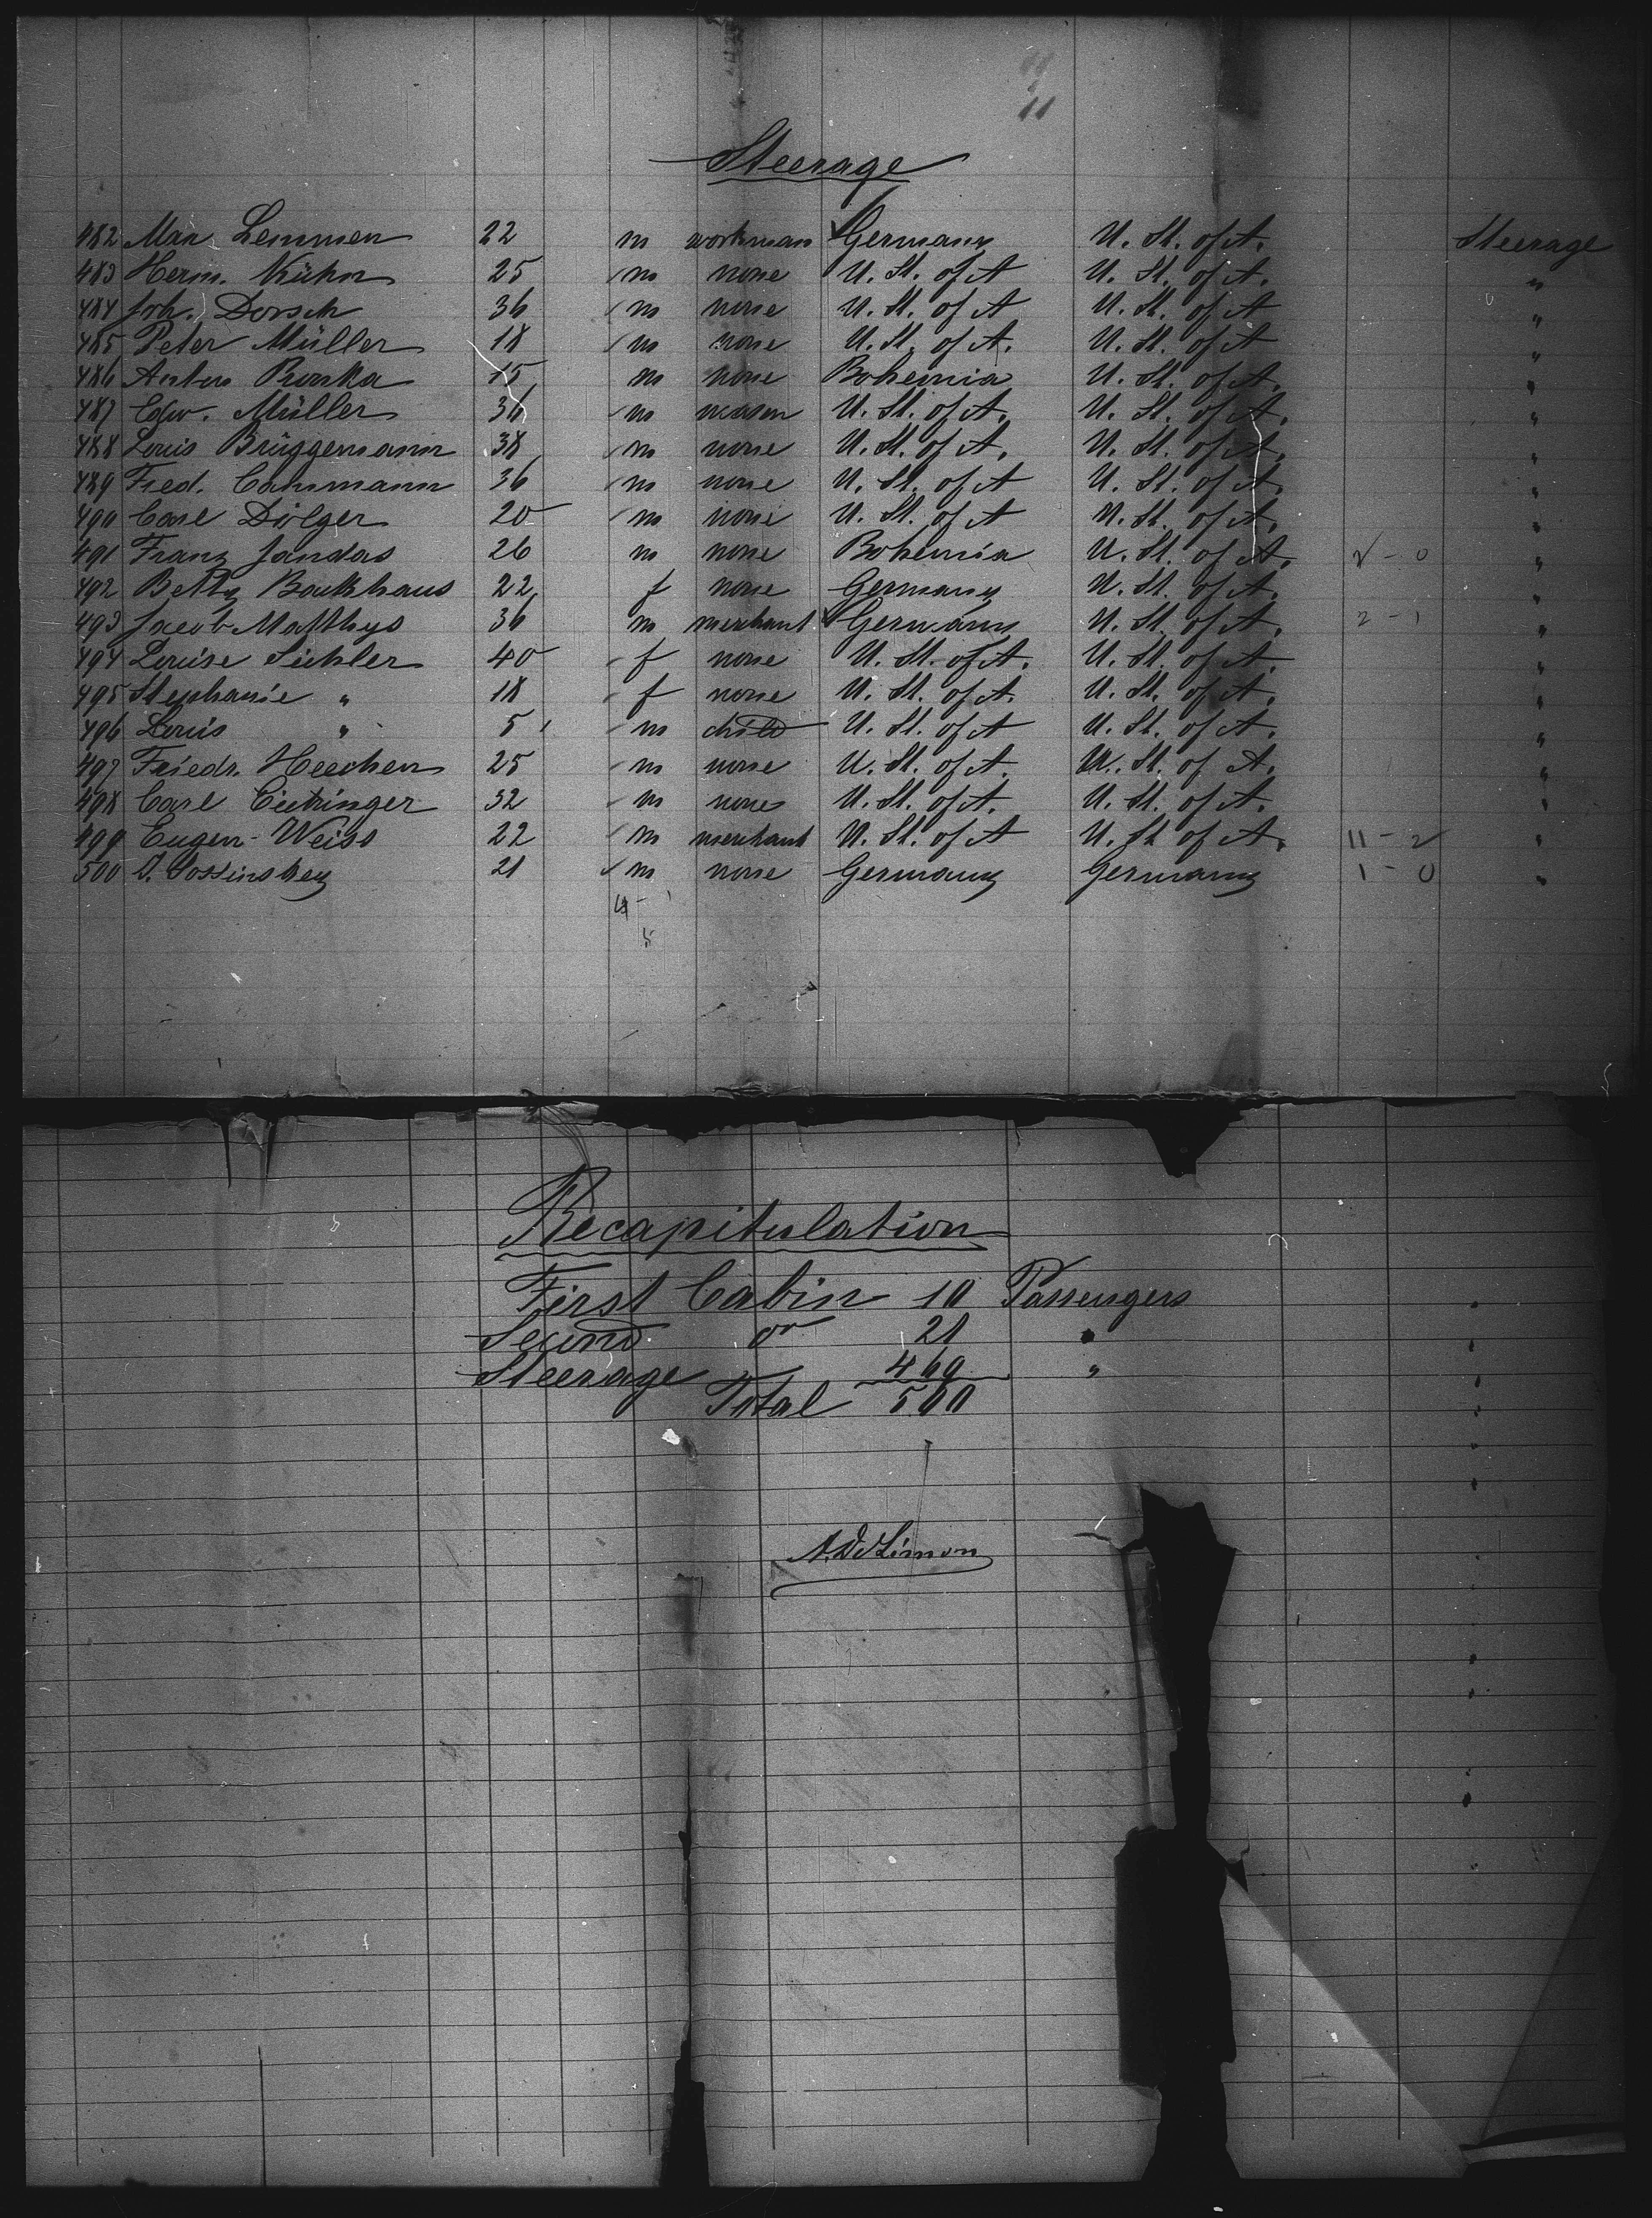 11
Steerage
482 Max Lemmen 22 m workman Germany U. St. of A. Steerage
483 Herm. Kühn 25 m none U. St. of A U. St. of A. "
484 Joh. Dorsch 36 m none U. St. of A U. St. of A "
485 Peter Müller 18 m none U. St. of A. U. St. of A "
486 Anton Ruska 15 m none Bohemia U. St. of A. "
487 Edw. Müller 36 m mason U. St. of A. U. St. of A. "
488 Louis Brüggemann 38 m none U. St. of A. U. St. of A. "
489 Fred. Cammann 36 m none U. St. of A U. St. of A. "
490 Carl Dölger 20 m none U. St. of A U. St. of A. "
491 Franz Jandas 26 m none Bohemia U. St. of A. 2 - 0 "
492 Betty Backhaus 22 f none Germany U. St. of A. "
493 Jacob Matthys 36 m merchant Germany U. St. of A. 2 - 1 "
494 Louise Sichler 40 f none U. St. of A. U. St. of A. "
495 Stephanie " 18 f none U. St. of A. U. St. of A. "
496 Louis " 5 m child U. St. of A U. St. of A. "
497 Friedr. Heechen 25 m none U. St. of A. U. St. of A. "
498 Carl 32 m none U. St. of A. U. St. of A. "
499 Eugen Weiss 22 m merchant U. St. of A U. St of A. 11 - 2 "
500 21 m none Germany Germany 1 - 0 "
Recapitulation
First Cabin 10 Passengers
Second do 21 "
Steerage 469 "
Total 500